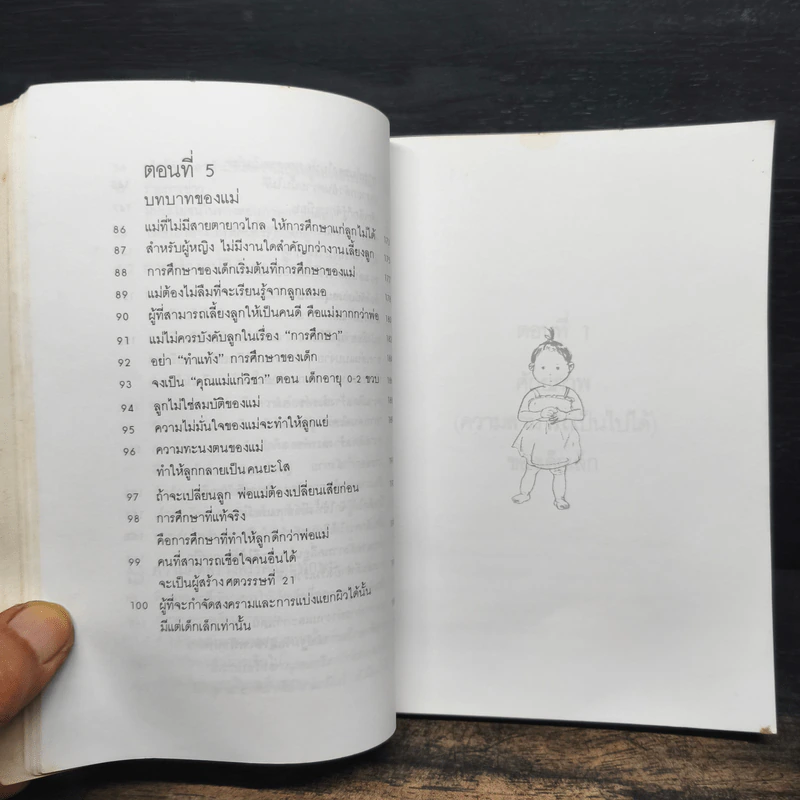 ตอนที่ 5
บทบาทของแม่
86 แม่ที่ไม่มีสายตายาวไกล ให้การศึกษาแก่ลูกไม่ได้
87 สำหรับผู้หญิง ไม่มีงานใดสำคัญกว่างานเลี้ยงลูก
88 การศึกษาของเด็กเริ่มต้นที่การศึกษาของแม่
89 แม่ต้องไม่ลืมที่จะเรียนรู้จากลูกเสมอ
90 ผู้ที่สามารถเลี้ยงลูกให้เป็นคนดี คือแม่มากกว่าพ่อ
91 แม่ไม่ควรบังคับลูกในเรื่อง “การศึกษา”
92 อย่า “ทำแท้ง” การศึกษาของเด็ก
93 จงเป็น “คุณแม่แก่วิชา” ตอน เด็กอายุ 0-2 ขวบ
94 ลูกไม่ใช่สมบัติของแม่
95 ความไม่มั่นใจของแม่จะทำให้ลูกแย่
96 ความทะนงตนของแม่
ทำให้ลูกกลายเป็นคนยะโส
97 ถ้าจะเปลี่ยนลูก พ่อแม่ต้องเปลี่ยนเสียก่อน
98 การศึกษาที่แท้จริง
คือการศึกษาที่ทำให้ลูกดีกว่าพ่อแม่
99 คนที่สามารถเชื่อใจคนอื่นได้
จะเป็นผู้สร้างศตวรรษที่ 21
100 ผู้ที่จะกำจัดสงครามและการแบ่งแยกผิวได้นั้น
มีแต่เด็กเล็กเท่านั้น